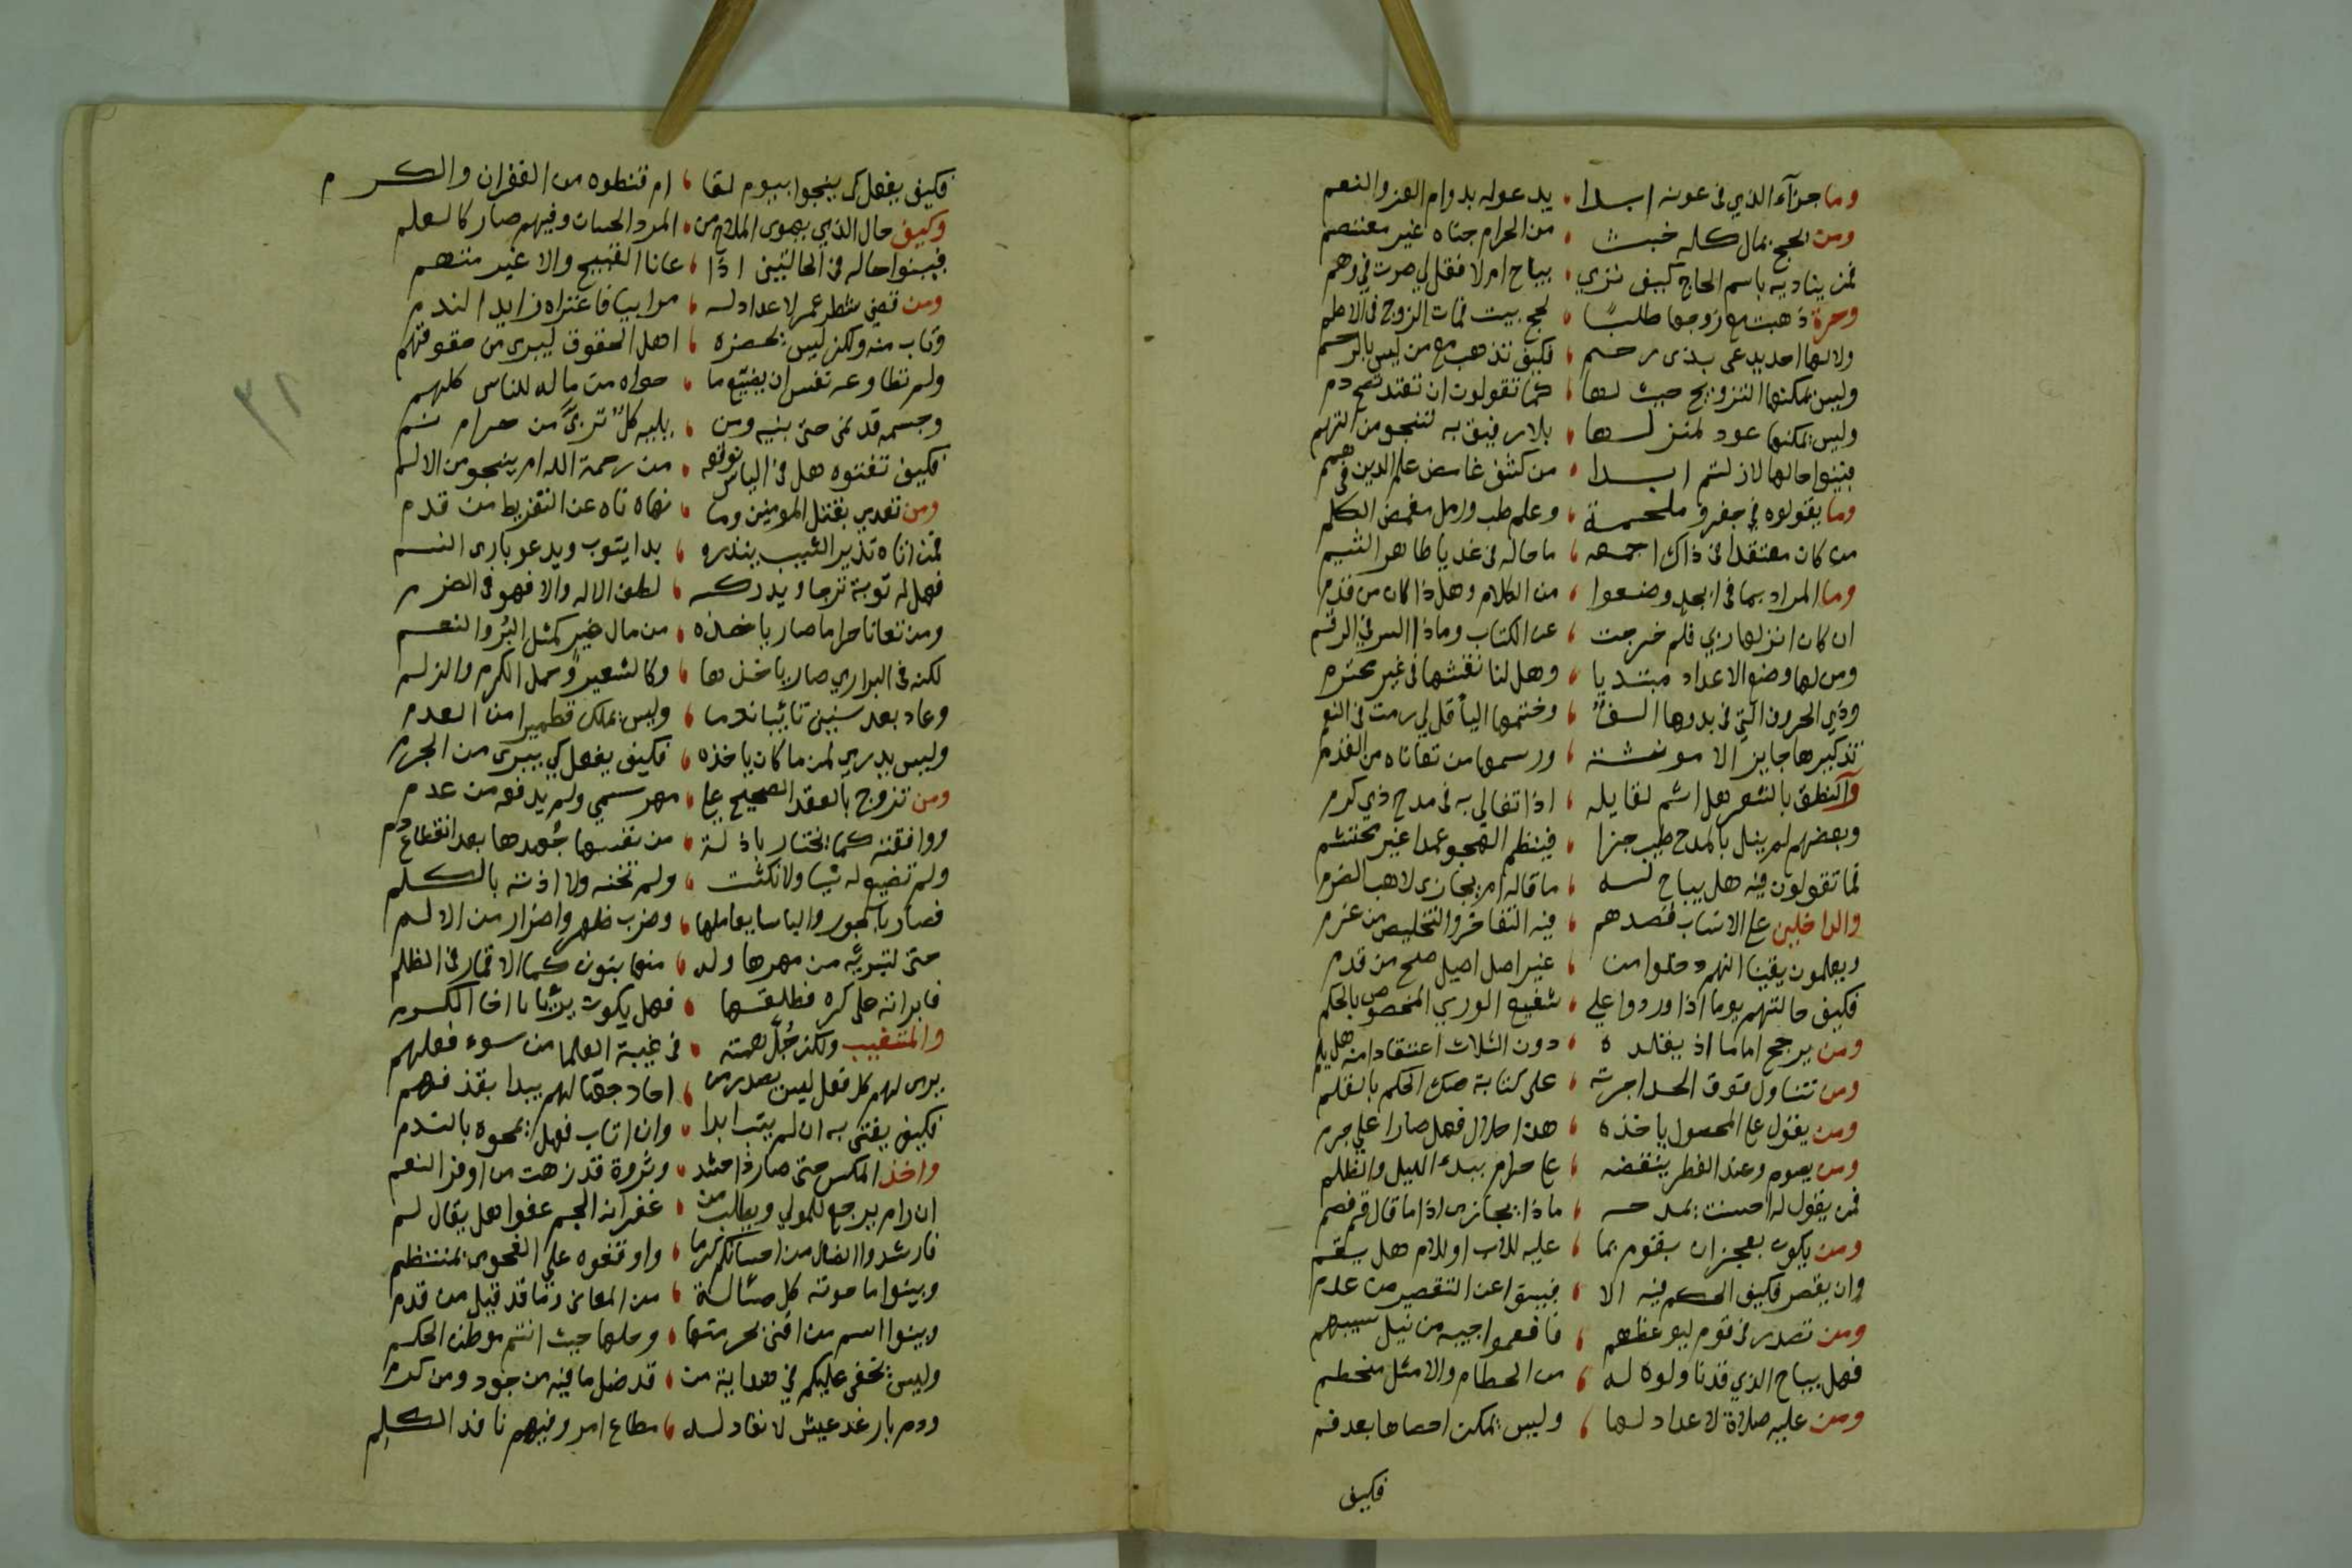 وما جزآء الذي في عونه ابدا ، يدعو له بدوام العز والنعم
ومن يحج بمال كله خبث ، من الحرام جناه غير معتصم
فمن يناديه باسم الحاج كيف تري ، يباح ام لا فقل لي صرت في وهم
وحرة ذهبت مع زوجها طلبا ، لحج بيت فمات الزوج في الاطم
ولا لها احد يدعى بذى رحم ، فكيف تذهب مع من ليس بالرحم
وليس يمكنها التزويج حيث لها ، كما تقولون ان تعتد
وليس يمكنها عود لمنزلها ، بلا رفيق به تنجو من التهم
فبينوا حالها لا زلتم ابدا ، من كشف غامض علم الدين في همم
وما يقولوه في جفر وملحمة ، وعلم طب ورمل مغمض الكلم
من كان معتقدا في ذاك اجمعه ، ما حاله في غد يا طاهر الشيم
وما المراد بما في ابجد وضعوا ، من الكلام وهل ذا كان من قدم
ان كان انزلها ربي فلم خرجت ، عن الكتاب وماذا السر في الرقم
ومن لها وضع الاعداد مبتديا ، وهل لنا نقشها في غير محترم
وذي الحروف التي في بدوها الف ، وختمها اليا قل لي رمت في النعم
تذكيرها جايز الا مونثة ، ورسمها من تعاناه من القدم
والنطق بالشعر هل اثم لقايله ، اذا تغالي به في مدح ذي كرم
وبعضهم لم ينل بالمدح طيب جزا ، فينظم الهجو عمدا غير محتشم
فما تقولون فيه هل يباح له ، ما قاله ام يجازى لاهب الضرم
والداخلين على الانساب قصدهم ، فيه التفاخر والتخليص من غرم
ويعلمون يقينا انهم دخلوا من ، غير اصل اصيل صلح من قدم
فكيف حالتهم يوما اذا وردوا علي ، شفيع الوري المخصوص بالحكم
ومن يرجح اماما اذ يقلده ، دون الثلاث اعتقادا منه هل يلم
ومن تناول فوق الحد اجرته ، على كتابة صك الحكم بالقلم
ومن يقول على المحصول ياخذه ، هذا حلال فهل صارا علي جرم
ومن يصوم وعند الفطر ينقضه ، على حرام ببدء الليل والظلم
فمن يقول له احسنت يمدحه ، ماذا يجازى اذا ما قال قم فصم
ومن يكون بعجز ان يقوم بما ، عليه للاب او للام هل يقم
وان يقصر فكيف الحكم فيه الا ، فيبنوا عن التقصير من عدم
ومن تصدر في قوم ليوعظهم ، فافعموا جيبه من نيل سيبهم
فهل يباح الذي قد ناولوه له ، من الحطام والا مثل منحطم
ومن عليه صلاة لا عداد لها ، وليس يمكن احصاها بعد فم
فكيف
فكيف يفعل كي ينجوا بيوم لقا ، ام قنطوه من الغفران والكرم
وكيف حال الذي يهوى الملاح من ، المرد الحسان وفيهم صار كالعلم
فبينوا حاله في الحالتين اذا ، عانا القبيح والا غير متهم
ومن قضي شطر عمر لا عداد له ، مرابيا فاعتراه زايد الندم
وتاب منه ولكن ليس يحضره ، اهل الحقوق ليبرى من حقوقهم
ولم تطاوعه نفس ان يضيع ما ، حواه من ماله للناس كلهم
وجسمه قد نمى حتى بنيه ومن ، يليه كل تربى من حرام
فكيف تفتوه هل في الياس توقعه ، من رحمة الله ام ينجو من الالم
ومن تعدي بقتل المومنين وما ، نهاه ناه عن التفريط من قدم
فمن اتاه نذير الشيب ينذره ، بدا يتوب ويدعو باري النسم
فهل له توبة ترجا ويدركه ، لطف الاله والا فهو في الضرم
ومن تعانا حراما صار ياخذه ، من مال غير كمثل البر والنعم
لكنه في البراري صار ياخذها ، وكالشعير وحمل الكرم والزلم
وعاد بعد سنين تائبا ندما ، وليس يملك قطميرا من العدم
وليس يدري لمن ما كان ياخذه ، فكيف يفعل كي يبرى من الجرم
ومن تزوج بالعقد الصحيح على ، مهر سمي ولم يدفعه من عدم
ووافقته كما يختار باذلة ، من نفسها جهدها بعد انقطاع دم
ولم تضيع له شيا ولا نكثت ، ولم تخنه ولا اذته بالكلم
فصار بالجور والباسا يعاملها ، وضرب ظهر واضرار من الالم
حتى لتبريه من مهرها وله ، منها بنون كما الاقمار في الظلم
فابراته على كره فطلقها ، فهل يكون بريئا يا اخا الكرم
والمتغيب ولكن جل همته ، في غيبة العلما من سوء فعلهم
يرى لهم كل فعل ليس يصدر من ، احاد جهالهم يبدا بقذفهم
فكيف يفتى به ان لم يتب ابدا ، وان اتاب فهل يمحوه بالندم
واخذ المكس حتى صار ذا حشد ، وثروة قد زهت من اوفر النعم
ان رام يرجع للمولي ويطلب من ، غفرانه الجم عفوا هل يقال لم
فارشدوا الضال من احسانكم كرما ، واوقفوه علي الفحوى بمنتظم
وبينوا ما حوته كل مسالة ، من المعاني وما قد قيل من قدم
وبينوا اسم من افتى بحرمتها ، وحلها حيث انتم موطن الحكم
وليس يخفى عليكم في هداية من ، قد ضل ما فيه من جود ومن كرم
ودم بارغد عيش لا نفاد له ، مطاع امر وفيهم نافذ الكلم
٣٢